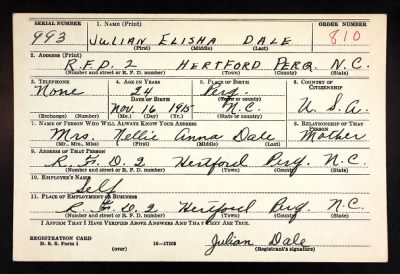 SERIAL NUMBER 1. NAME (Print) ORDER NUMBER
993 JULIAN ELISHA DALE 810
(First) (Middle) (Last)
2. ADDRESS (Print)
R.F.D. 2 HERTFORD PERQ. N.C.
(Number and street or R. F. D. number) (Town) (County) (State)
3. TELEPHONE 4. AGE IN YEARS 5. PLACE OF BIRTH 6. COUNTRY OF CITIZENSHIP
None 24 Perq.
DATE OF BIRTH (Town or county)
Nov. 16 1915 N.C. U.S.A.
(Exchange) (Number) (Mo.) (Day) (Yr.) (State or country)
7. NAME OF PERSON WHO WILL ALWAYS KNOW YOUR ADDRESS 8. RELATIONSHIP OF THAT PERSON
Mrs. Nellie Anna Dale Mother
(Mr., Mrs., Miss) (First) (Middle) (Last)
9. ADDRESS OF THAT PERSON
R.F.D. 2 Hertford Perq. N.C.
(Number and street or R. F. D. number) (Town) (County) (State)
10. EMPLOYER'S NAME
Self
11. PLACE OF EMPLOYMENT OR BUSINESS
R.F.D. 2 Hertford Perq. N.C.
(Number and street or R. F. D. number) (Town) (County) (State)
I AFFIRM THAT I HAVE VERIFIED ABOVE ANSWERS AND THAT THEY ARE TRUE.
REGISTRATION CARD
D. S. S. Form 1 (over) 16—17105
Julian Dale
(Registrant's signature)